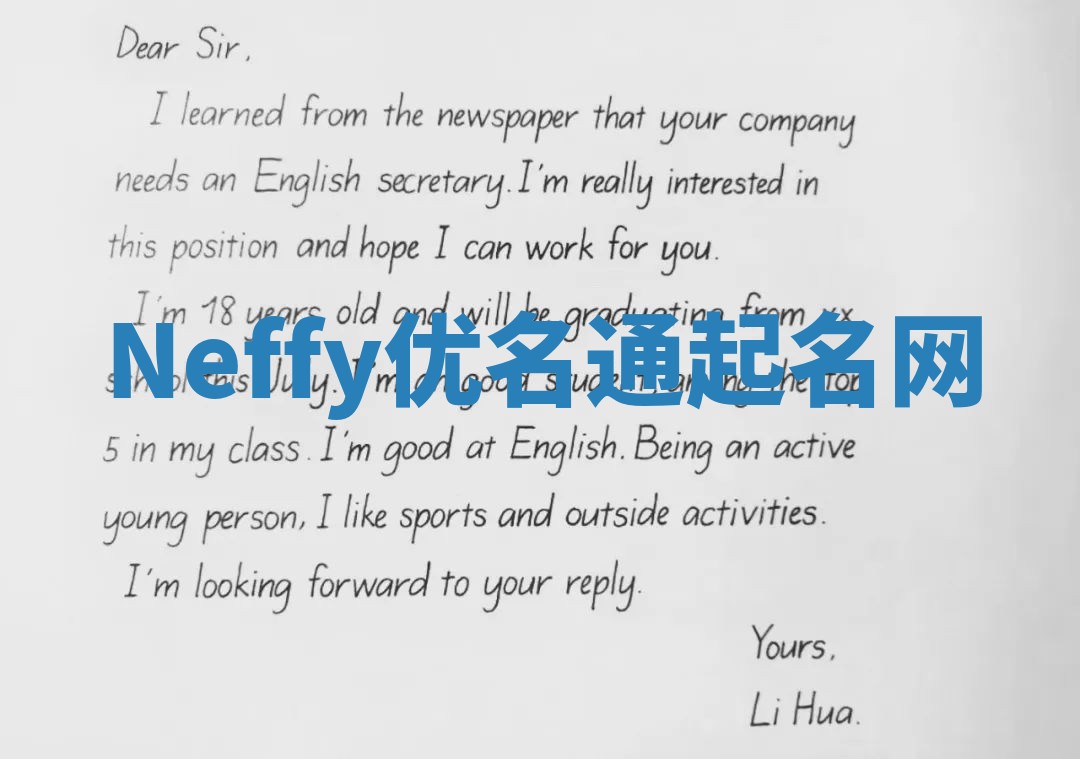 Dear Sir,
I learned from the newspaper that your company
needs an English secretary. I'm really interested in
this position and hope I can work for you.
I'm 18 years old and will be graduating from xx
Neffy优名通起名网
school this July. I'm a good student, among the top
5 in my class. I'm good at English. Being an active
young person, I like sports and outside activities.
I'm looking forward to your reply.
Yours,
Li Hua.